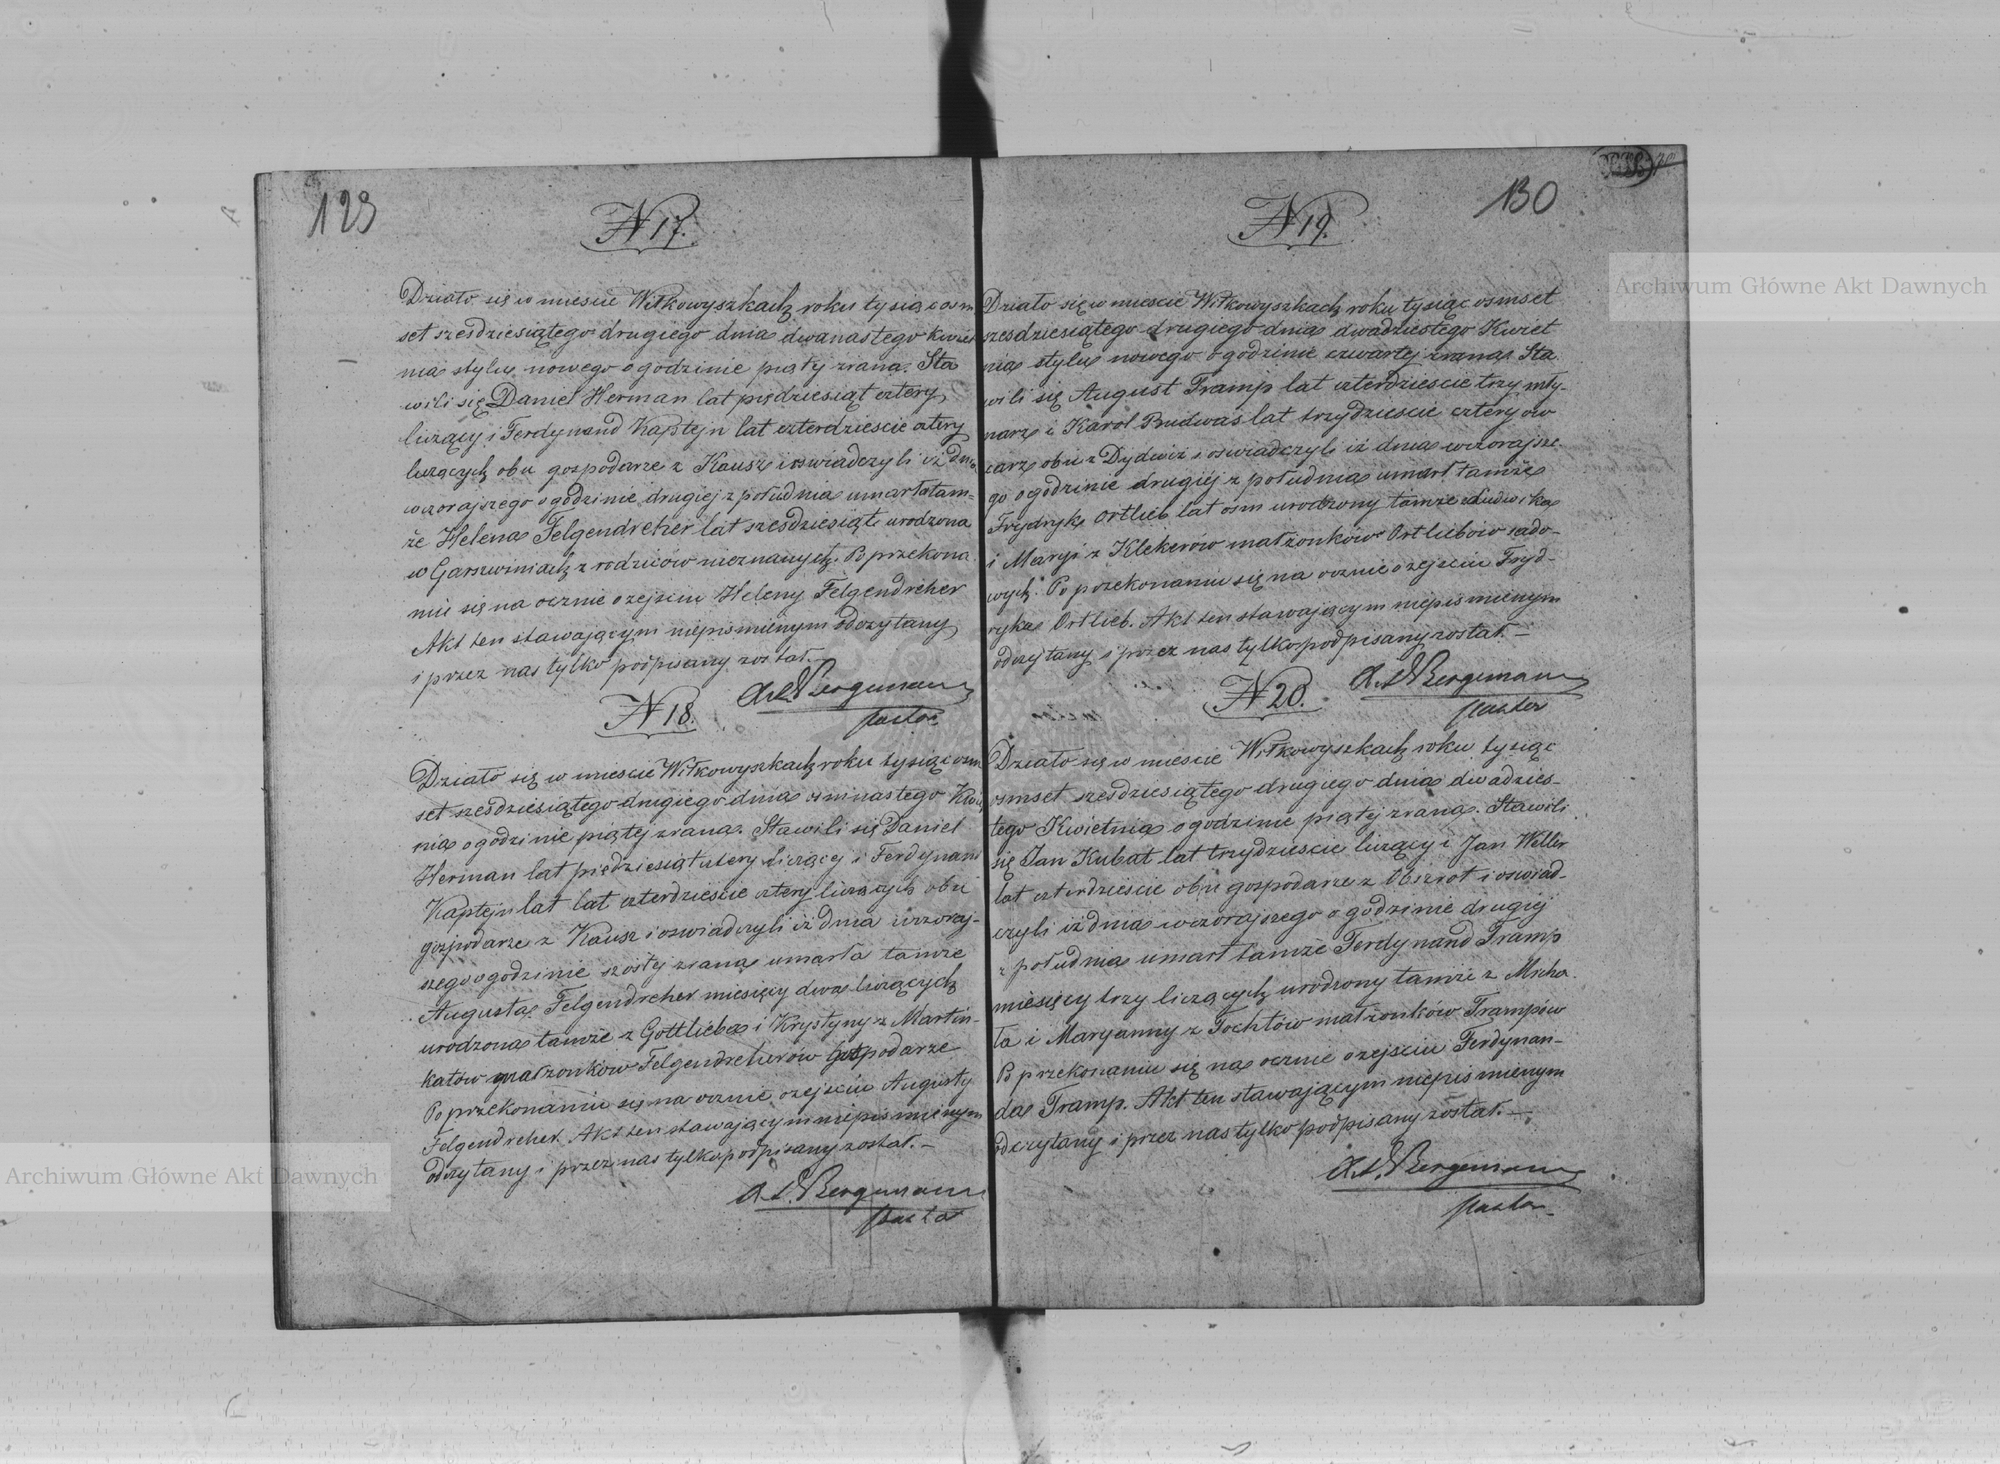 129
N 17.
Działo się w miescie Wiłkowyszkach roku tysiąc osm
set szesdziesiątego drugiego dnia dwanastego kwiet
nia stylu nowego o godzinie piąty zrana. Sta
wili się Daniel Herman lat piędziesiąt cztery
liczący i Ferdynand Kaptejn lat czterdziescie cztery
liczących obu gospodarze z Kausz i oswiadczyli iż dnia
wczorajszego o godzinie drugiej z południa umarła tam-
że Helena Felgendreher lat szesdziesiąt urodzona
w Garszwiniach z rodziców nieznanych. Po przekona
niu się na ocznie o zejsciu Heleny Felgendreher
Akt ten stawającym niepismienym odczytany
i przez nas tylko podpisany został.
Bergemann
pastor
N 18.
Działo się w miescie Wiłkowyszkach roku tysiąc osm
set szesdziesiątego drugiego dnia osmnastego Kwiet
nia o godzinie piątej zrana. Stawili się Daniel
Herman lat piędziesiąt cztery liczący i Ferdynand
Kaptejn lat lat czterdziescie cztery liczących obu
gospodarze z Kausz i oswiadczyli iż dnia wczoraj-
szego o godzinie szostej zrana umarła tamże
Augusta Felgendreher miesięcy dwa liczących
urodzona tamże z Gottlieba i Krystyny z Martin-
katów małzonkow Felgendreherów Gospodarze
Po przekonaniu się na ocznie o zejsciu Augusty
Felgendreher. Akt ten stawającym niepismienym
odczytany i przez nas tylko podpisany został. —
Bergemann
pastor
130
N 19.
Działo się w miescie Wiłkowyszkach roku tysiąc osmset
szesdziesiątego drugiego dnia dwadziestego Kwiet
nia stylu nowego o godzinie czwartej zrana Sta
wili się August Tramp lat czterdziescie trzy mły-
narz i Karol Budwas lat trzydziescie cztery ow
carz obu z Dydwiż i oswiadczyli iż dnia wczorajsze
go o godzinie drugiej z południa umarł tamże
Frydryk Ortlieb lat osm urodzony tamże z Ludwika
i Maryi z Klekerow małzonków Ortliebow sado-
wych. Po przekonaniu się na ocznie o zejsciu Fryd-
ryka Ortlieb. Akt ten stawającym niepismienym
odczytany i przez nas tylko podpisany został. —
Bergemann
pastor
N 20.
Działo się w miescie Wiłkowyszkach roku tysiąc
osmset szesdziesiątego drugiego dnia dwadzies-
tego Kwietnia o godzinie piątej zrana. Stawili
się Jan Kubat lat trzydziescie liczący i Jan Weller
lat czterdziescie obu gospodarze z Obszrot i oswiad-
czyli iż dnia wczorajszego o godzinie drugiej
z południa umarł tamże Ferdynand Tramp
miesięcy trzy liczących urodzony tamże z Micha
ła i Maryanny z Tochtów małzonków Trampów
Po przekonaniu się na ocznie o zejsciu Ferdynan-
da Tramp. Akt ten stawającym niepismienym
odczytany i przez nas tylko podpisany został. —
Bergemann
pastor
Archiwum Główne Akt Dawnych
Archiwum Główne Akt Dawnych